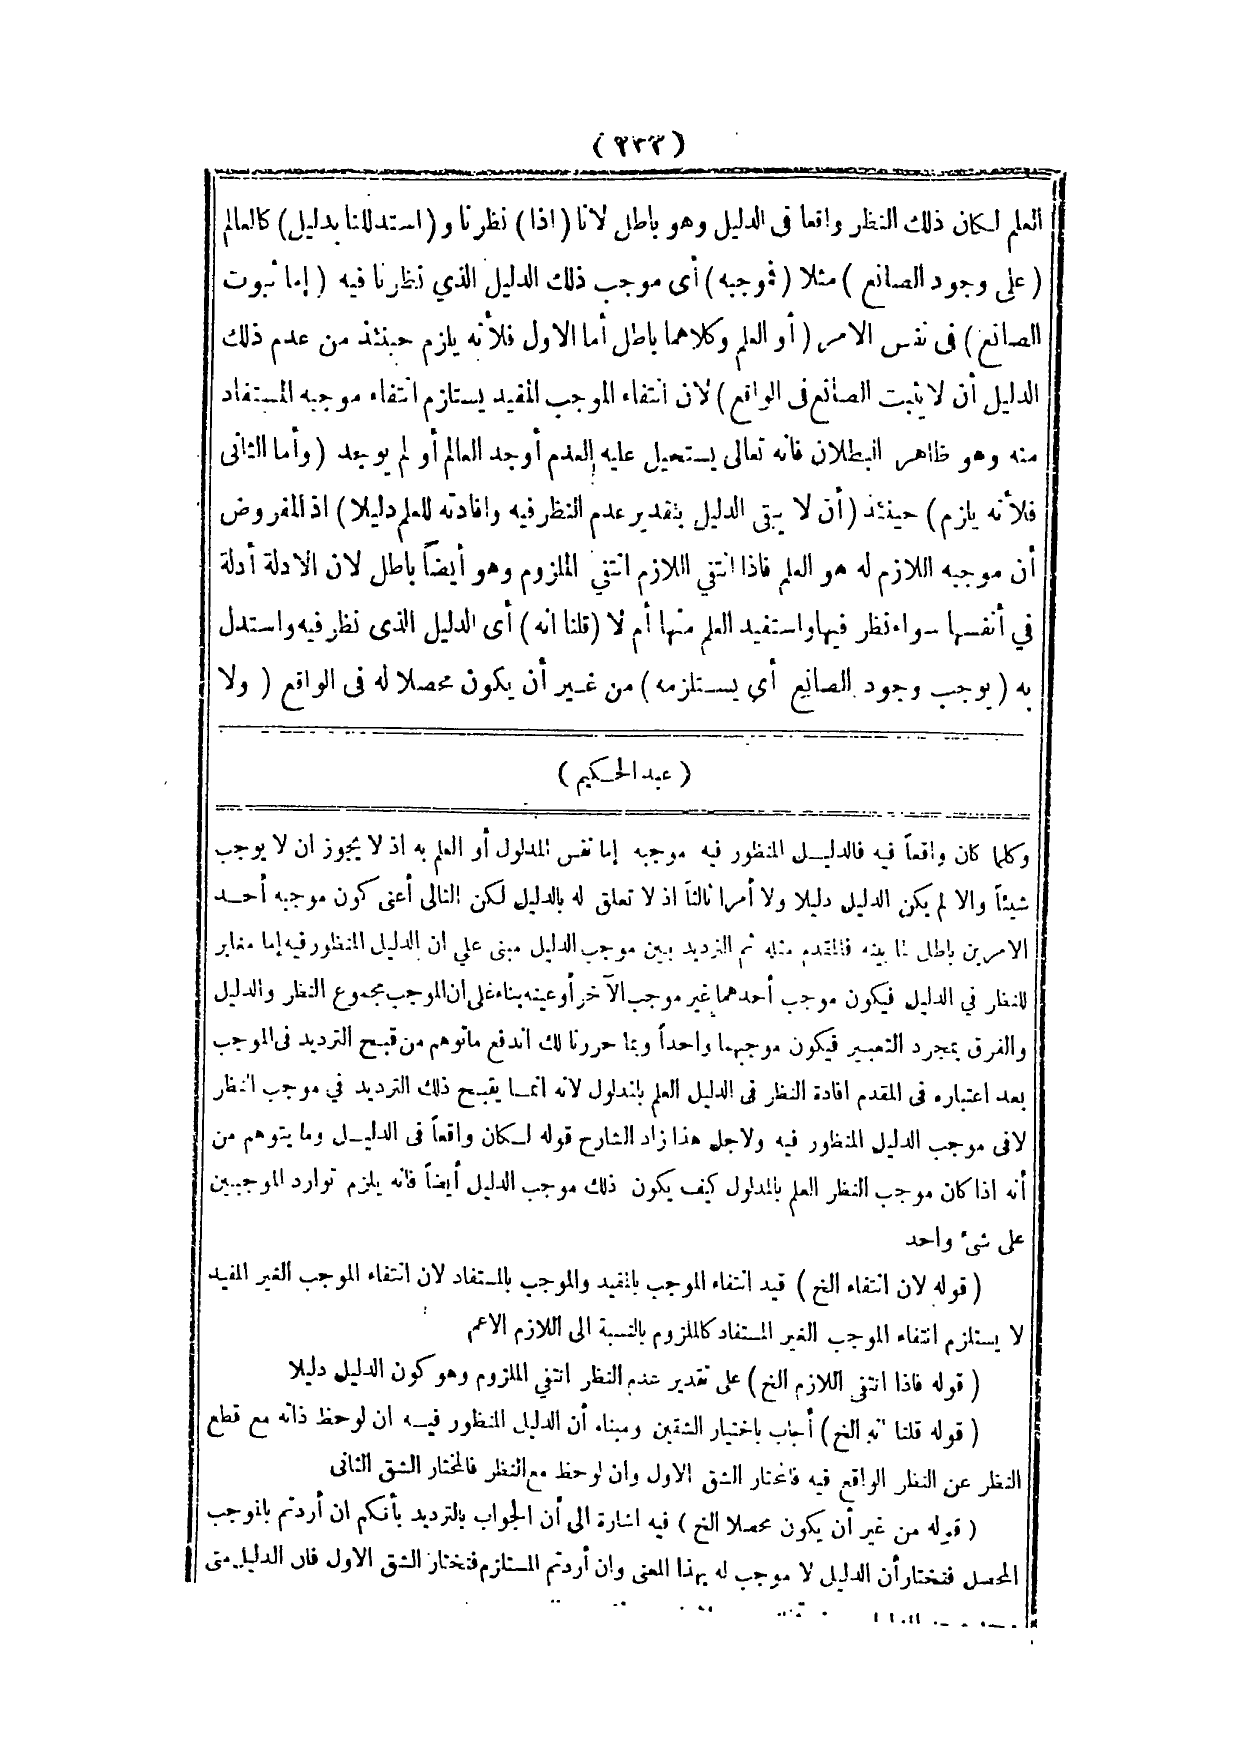 (٢٣٣)
العلم لكان ذلك النظر واقعا فى الدليل وهو باطل لانا (اذا) نظرنا و (استدللنا بدليل) كالعالم
(على وجود الصانع) مثلا (فموجبه) أى موجب ذلك الدليل الذي نظرنا فيه (إما ثبوت
الصانع) فى نفس الامر (أو العلم وكلاهما باطل أما الاول فلأنه يلزم حينئذ من عدم ذلك
الدليل أن لا يثبت الصانع فى الواقع) لان انتفاء الموجب المفيد يستلزم انتفاء موجبه المستفاد
منه وهو ظاهر البطلان فانه تعالى يستحيل عليه العدم أوجد العالم أو لم يوجد (وأما الثانى
فلأنه يلزم) حينئذ (أن لا يبقى الدليل بتقدير عدم النظر فيه وافادته للعلم دليلا) اذ المفروض
أن موجبه اللازم له هو العلم فاذا انتفي اللازم انتفي الملزوم وهو أيضاً باطل لان الادلة أدلة
في أنفسها سواء نظر فيها واستفيد العلم منها أم لا (قلنا انه) أى الدليل الذى نظر فيه واستدل
به (يوجب وجود الصانع أي يستلزمه) من غير أن يكون محصلا له فى الواقع (ولا
(عبد الحكيم)
وكلما كان واقعاً فيه فالدليل المنظور فيه موجبه إما نفس المدلول أو العلم به اذ لا يجوز ان لا يوجب
شيئاً والا لم يكن الدليل دليلا ولا أمرا ثالثاً اذ لا تعلق له بالدليل لكن التالى أعنى كون موجبه أحد
الامرين باطل لما بينه فالمقدم مثله ثم الترديد بين موجب الدليل مبنى علي ان الدليل المنظور فيه إما مغاير
للنظر في الدليل فيكون موجب أحدهما غير موجب الآخر أو عينه بناء على ان الموجب مجموع النظر والدليل
والفرق بمجرد التعبير فيكون موجبهما واحداً وبما حررنا لك اندفع ما توهم من قبح الترديد فى الموجب
بعد اعتباره فى المقدم افادة النظر فى الدليل العلم بالمدلول لانه انما يقبح ذلك الترديد في موجب النظر
لا فى موجب الدليل المنظور فيه ولاجل هذا زاد الشارح قوله لكان واقعاً فى الدليل وما يتوهم من
أنه اذا كان موجب النظر العلم بالمدلول كيف يكون ذلك موجب الدليل أيضاً فانه يلزم توارد الموجبين
على شىء واحد
(قوله لان انتفاء الخ) قيد انتفاء الموجب بالمفيد والموجب بالمستفاد لان انتفاء الموجب الغير المفيد
لا يستلزم انتفاء الموجب الغير المستفاد كالملزوم بالنسبة الى اللازم الاعم
(قوله فاذا انتفى اللازم الخ) على تقدير عدم النظر انتفي الملزوم وهو كون الدليل دليلا
(قوله قلنا انه الخ) أجاب باختيار الشقين ومبناه أن الدليل المنظور فيه ان لوحظ ذاته مع قطع
النظر عن النظر الواقع فيه فاختار الشق الاول وان لوحظ مع النظر فالمختار الشق الثانى
(قوله من غير أن يكون محصلا الخ) فيه اشارة الى أن الجواب بالترديد بأنكم ان أردتم بالموجب
المحصل فنختار أن الدليل لا موجب له بهذا المعنى وان أردتم المستلزم فنختار الشق الاول فان الدليل متى